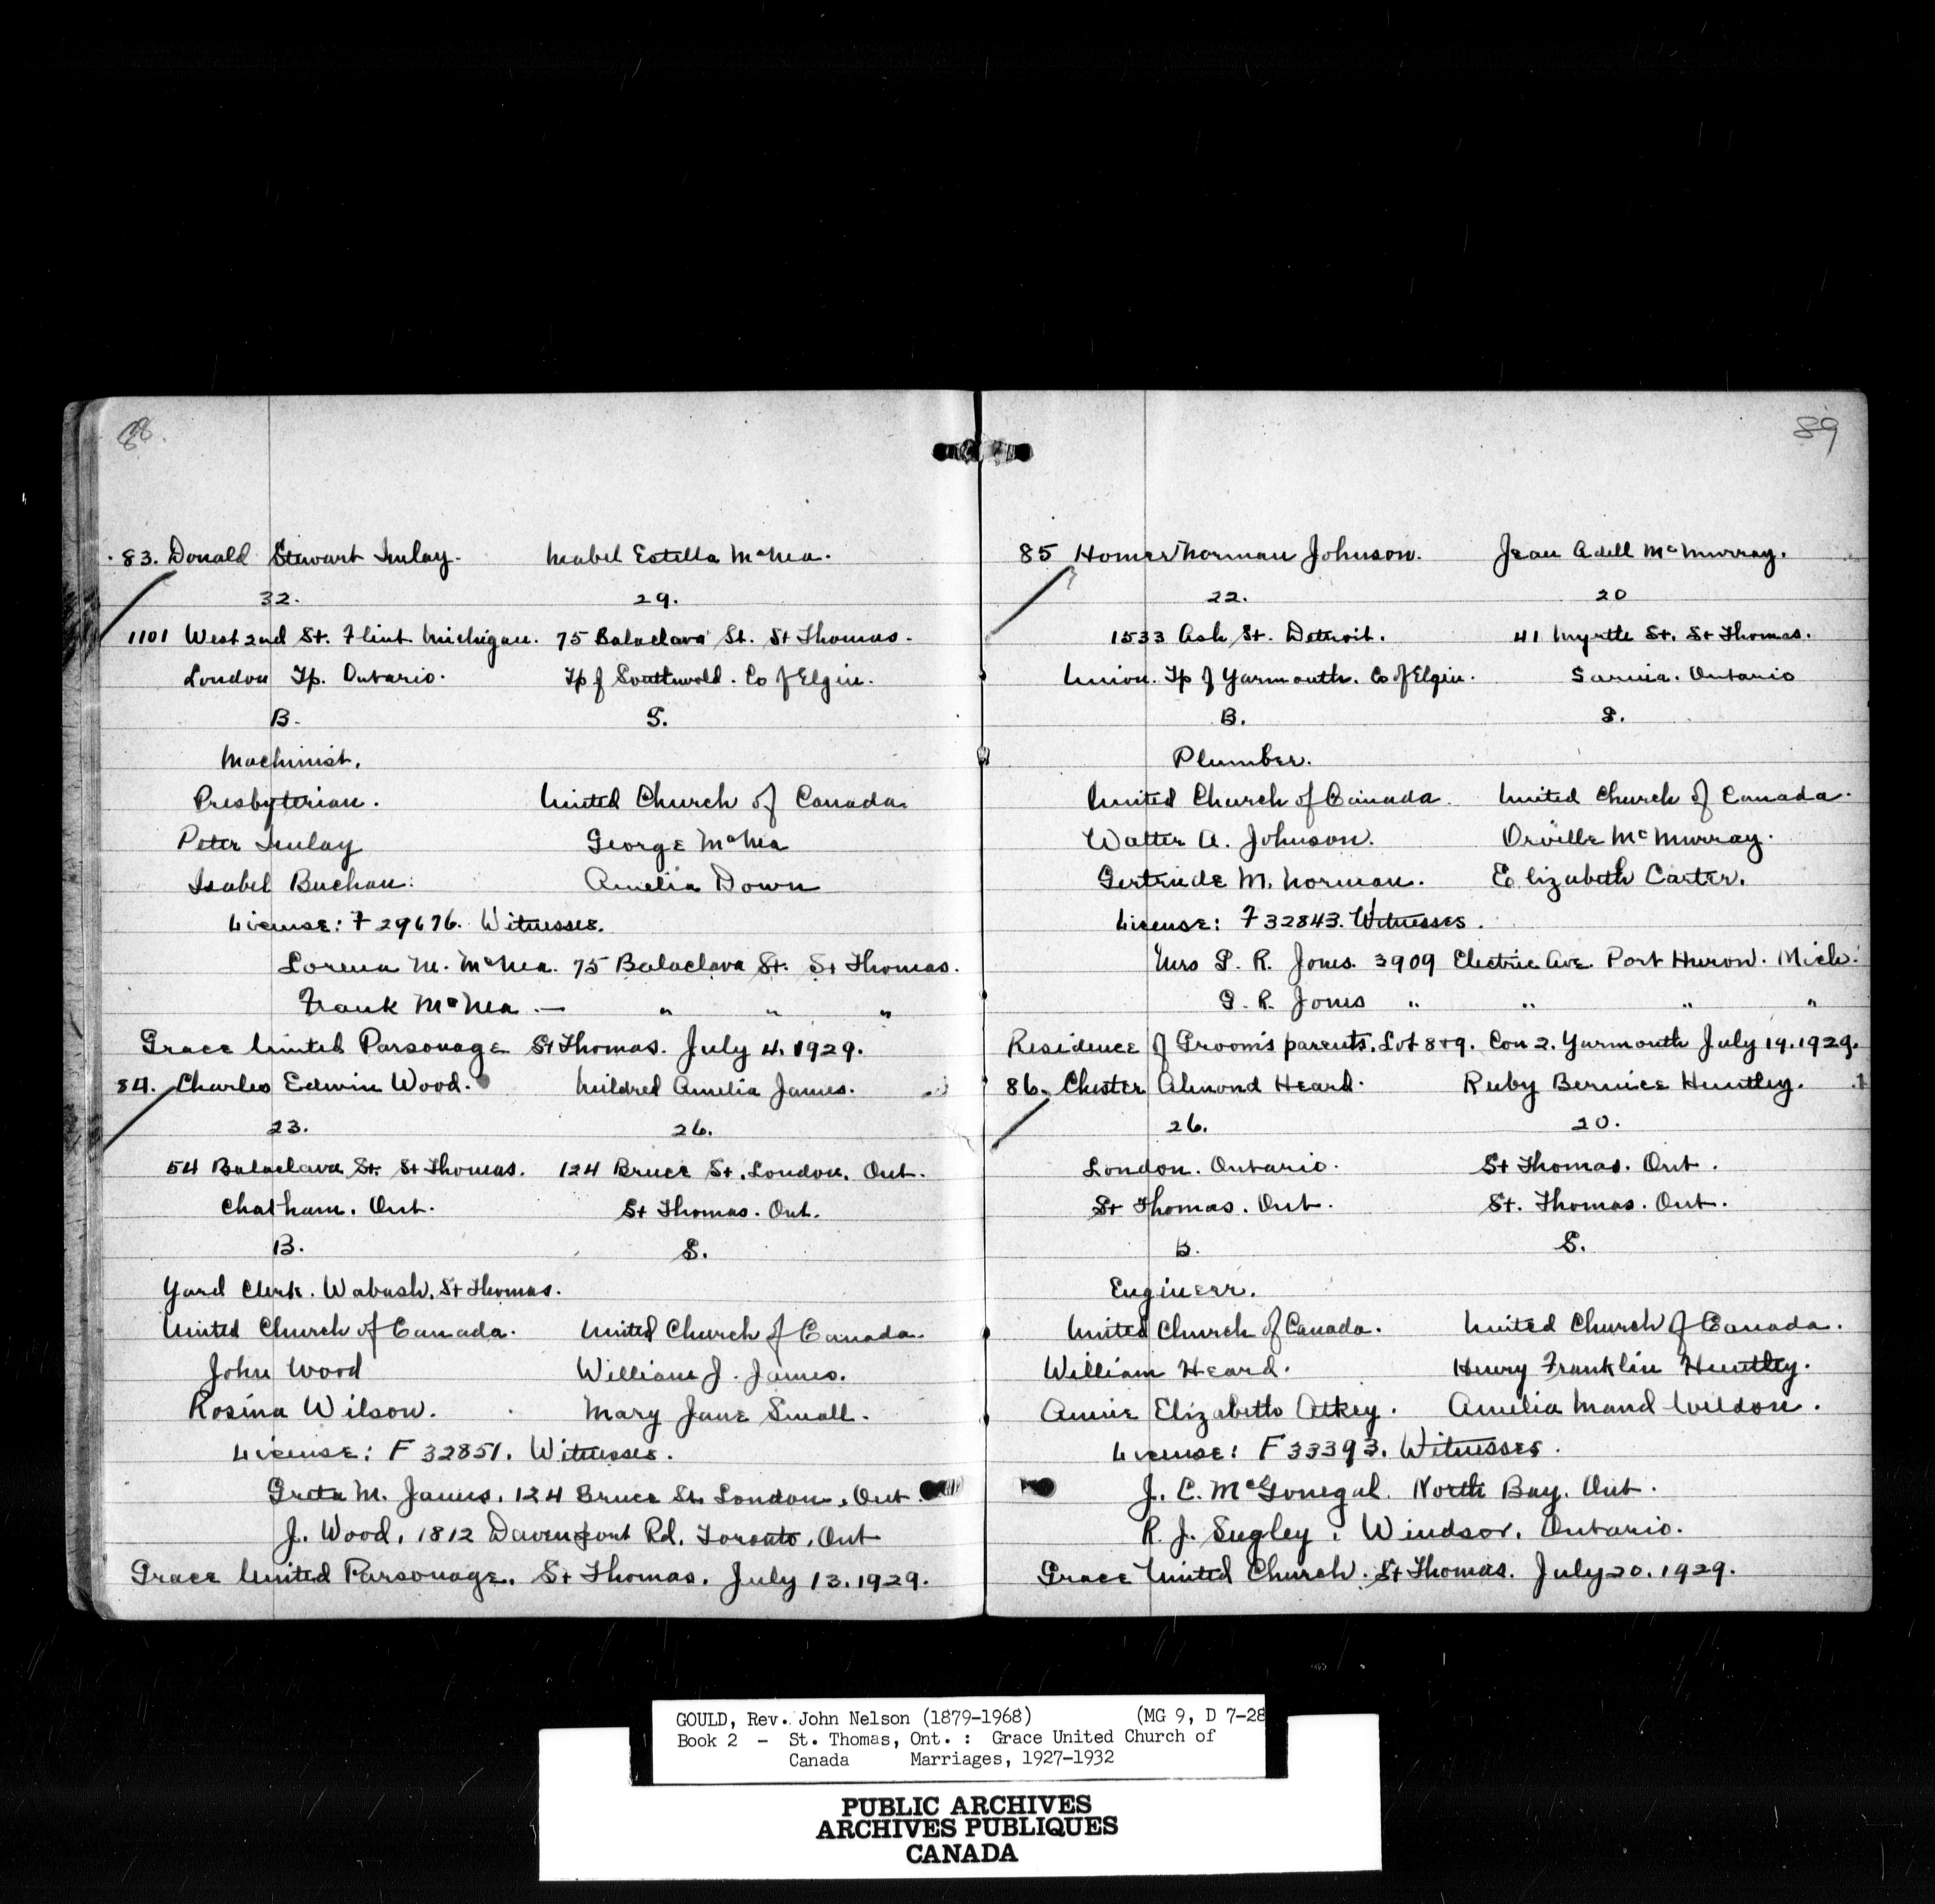 88.
·83. Donald Stewart Imlay. Mabel Estella McNea.
32. 29.
1101 West 2nd St. Flint Michigan. 75 Balaclava St. St Thomas.
London Tp. Ontario. Tp of Southwold. Co of Elgin.
B. S.
Machinist.
Presbyterian. United Church of Canada.
Peter Imlay George McNea
Isabel Buchan. Amelia Down
License: F 29676. Witnesses.
Lorena M. McNea. 75 Balaclava St. St Thomas.
Frank McNea. — " " "
Grace United Parsonage St Thomas. July 4. 1929.
84. Charles Edwin Wood. Mildred Amelia James.
23. 26.
54 Balaclava St. St Thomas. 124 Bruce St. London. Ont.
Chatham. Ont. St Thomas. Ont.
B. S.
Yard Clerk. Wabash. St Thomas.
United Church of Canada. United Church of Canada.
John Wood William J. James.
Rosina Wilson. Mary Jane Small.
License: F 32851. Witnesses.
Greta M. James. 124 Bruce St. London. Ont.
J. Wood. 1812 Davenport Rd. Toronto. Ont
Grace United Parsonage. St Thomas. July 13. 1929.
89
85 Homer Norman Johnson. Jean Adell McMurray.
22. 20
1533 Ash St. Detroit. 41 Myrtle St. St Thomas.
Union. Tp of Yarmouth. Co of Elgin. Sarnia. Ontario
B. S.
Plumber.
United Church of Canada. United Church of Canada.
Walter A. Johnson. Orville McMurray.
Gertrude M. Norman. Elizabeth Carter.
License: F 32843. Witnesses.
Mrs G. R. Jones. 3909 Electric Ave. Port Huron. Mich.
G. R. Jones " " " "
Residence of Groom's parents. Lot 8+9. Con 2. Yarmouth July 19. 1929.
86. Chester Almond Heard. Ruby Bernice Huntley.
26. 20.
London. Ontario. St Thomas. Ont.
St Thomas. Ont. St. Thomas. Ont.
B. S.
Engineer.
United Church of Canada. United Church of Canada.
William Heard. Henry Franklin Huntley.
Annie Elizabeth Atkey. Amelia Maud Weldon.
License: F 33393. Witnesses.
J. C. McGonegal. North Bay. Ont.
R. J. Sugley. Windsor. Ontario.
Grace United Church. St Thomas. July 20. 1929.
GOULD, Rev. John Nelson (1879-1968) (MG 9, D 7-28
Book 2 - St. Thomas, Ont. : Grace United Church of
Canada Marriages, 1927-1932
PUBLIC ARCHIVES
ARCHIVES PUBLIQUES
CANADA